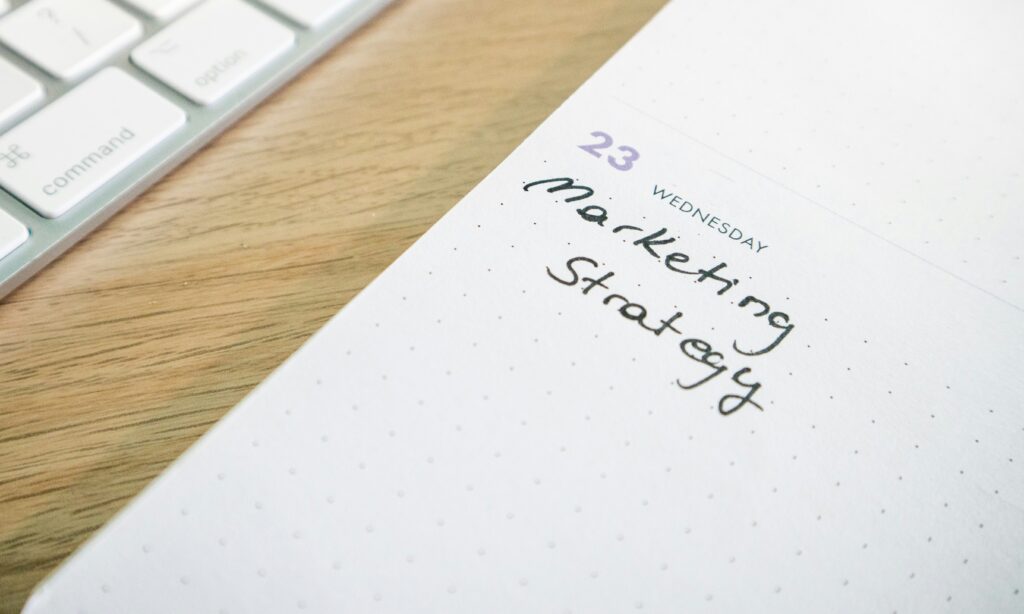 option
⌘ command
23
WEDNESDAY
Marketing
Strategy